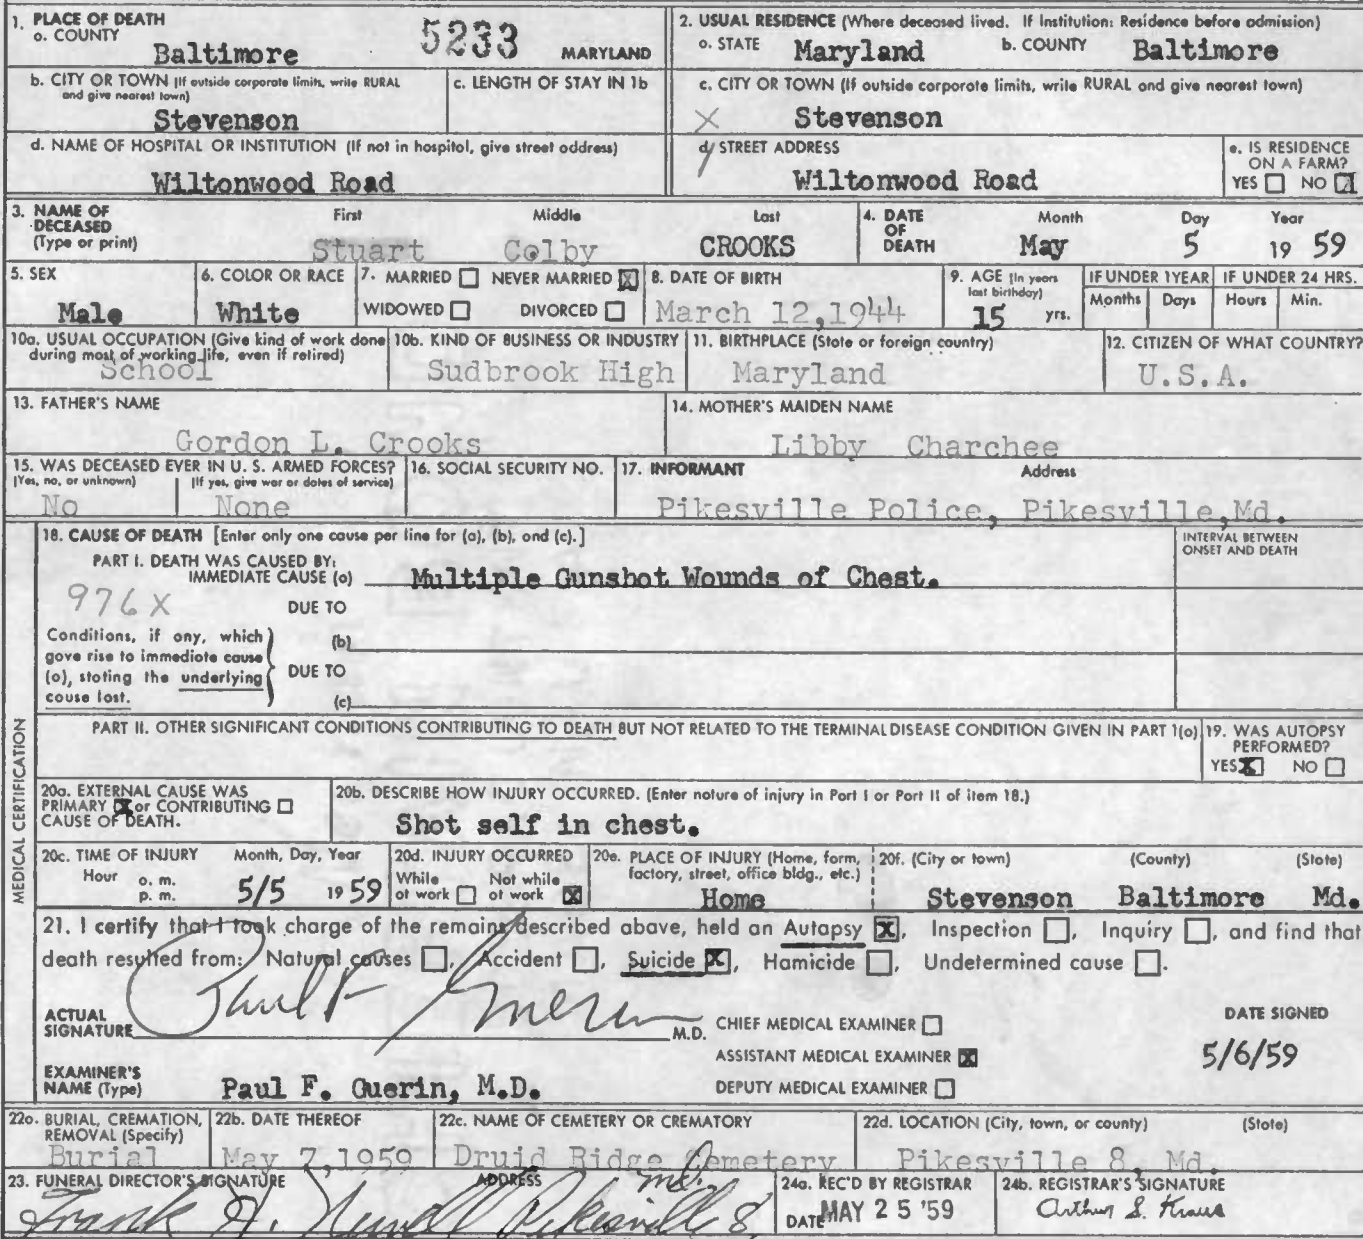 1. PLACE OF DEATH
a. COUNTY
Baltimore 5233 MARYLAND
2. USUAL RESIDENCE (Where deceased lived. If Institution: Residence before admission)
a. STATE Maryland b. COUNTY Baltimore
b. CITY OR TOWN (If outside corporate limits, write RURAL and give nearest town)
Stevenson
c. LENGTH OF STAY IN 1b
c. CITY OR TOWN (If outside corporate limits, write RURAL and give nearest town)
X Stevenson
d. NAME OF HOSPITAL OR INSTITUTION (If not in hospital, give street address)
Wiltonwood Road
d. STREET ADDRESS
Wiltonwood Road
e. IS RESIDENCE ON A FARM?
YES NO
3. NAME OF DECEASED (Type or print)
First Middle Last
Stuart Colby CROOKS
4. DATE OF DEATH
Month Day Year
May 5 1959
5. SEX
Male
6. COLOR OR RACE
White
7. MARRIED NEVER MARRIED X
WIDOWED DIVORCED
8. DATE OF BIRTH
March 12,1944
9. AGE (In years last birthday)
15 yrs.
IF UNDER 1 YEAR IF UNDER 24 HRS.
Months Days Hours Min.
10a. USUAL OCCUPATION (Give kind of work done during most of working life, even if retired)
School
10b. KIND OF BUSINESS OR INDUSTRY
Sudbrook High
11. BIRTHPLACE (State or foreign country)
Maryland
12. CITIZEN OF WHAT COUNTRY?
U.S.A.
13. FATHER'S NAME
Gordon L. Crooks
14. MOTHER'S MAIDEN NAME
Libby Charchee
15. WAS DECEASED EVER IN U. S. ARMED FORCES?
(Yes, no, or unknown) (If yes, give war or dates of service)
No None
16. SOCIAL SECURITY NO.
17. INFORMANT Address
Pikesville Police, Pikesville,Md.
MEDICAL CERTIFICATION
18. CAUSE OF DEATH [Enter only one cause per line for (a), (b), and (c).]
INTERVAL BETWEEN ONSET AND DEATH
PART I. DEATH WAS CAUSED BY:
IMMEDIATE CAUSE (a) Multiple Gunshot Wounds of Chest.
976X
DUE TO
Conditions, if any, which gave rise to immediate cause (a), stating the underlying cause last.
(b)
DUE TO
(c)
PART II. OTHER SIGNIFICANT CONDITIONS CONTRIBUTING TO DEATH BUT NOT RELATED TO THE TERMINAL DISEASE CONDITION GIVEN IN PART 1(a)
19. WAS AUTOPSY PERFORMED?
YES X NO
20a. EXTERNAL CAUSE WAS
PRIMARY X or CONTRIBUTING
CAUSE OF DEATH.
20b. DESCRIBE HOW INJURY OCCURRED. (Enter nature of injury in Part I or Part II of item 18.)
Shot self in chest.
20c. TIME OF INJURY Month, Day, Year
Hour a. m. p. m. 5/5 1959
20d. INJURY OCCURRED
While at work Not while at work X
20e. PLACE OF INJURY (Home, farm, factory, street, office bldg., etc.)
Home
20f. (City or town) (County) (State)
Stevenson Baltimore Md.
21. I certify that I took charge of the remains described above, held an Autopsy X, Inspection , Inquiry , and find that
death resulted from: Natural causes , Accident , Suicide X, Homicide , Undetermined cause .
ACTUAL SIGNATURE Paul F. Guerin M.D.
CHIEF MEDICAL EXAMINER
ASSISTANT MEDICAL EXAMINER X
DEPUTY MEDICAL EXAMINER
DATE SIGNED
5/6/59
EXAMINER'S NAME (Type) Paul F. Guerin, M.D.
22a. BURIAL, CREMATION, REMOVAL (Specify)
Burial
22b. DATE THEREOF
May 7,1959
22c. NAME OF CEMETERY OR CREMATORY
Druid Ridge Cemetery
22d. LOCATION (City, town, or county) (State)
Pikesville 8, Md.
23. FUNERAL DIRECTOR'S SIGNATURE ADDRESS
Frank H. Newell Pikesville 8, Md.
24a. REC'D BY REGISTRAR
DATE MAY 25 '59
24b. REGISTRAR'S SIGNATURE
Arthur S. Kraus